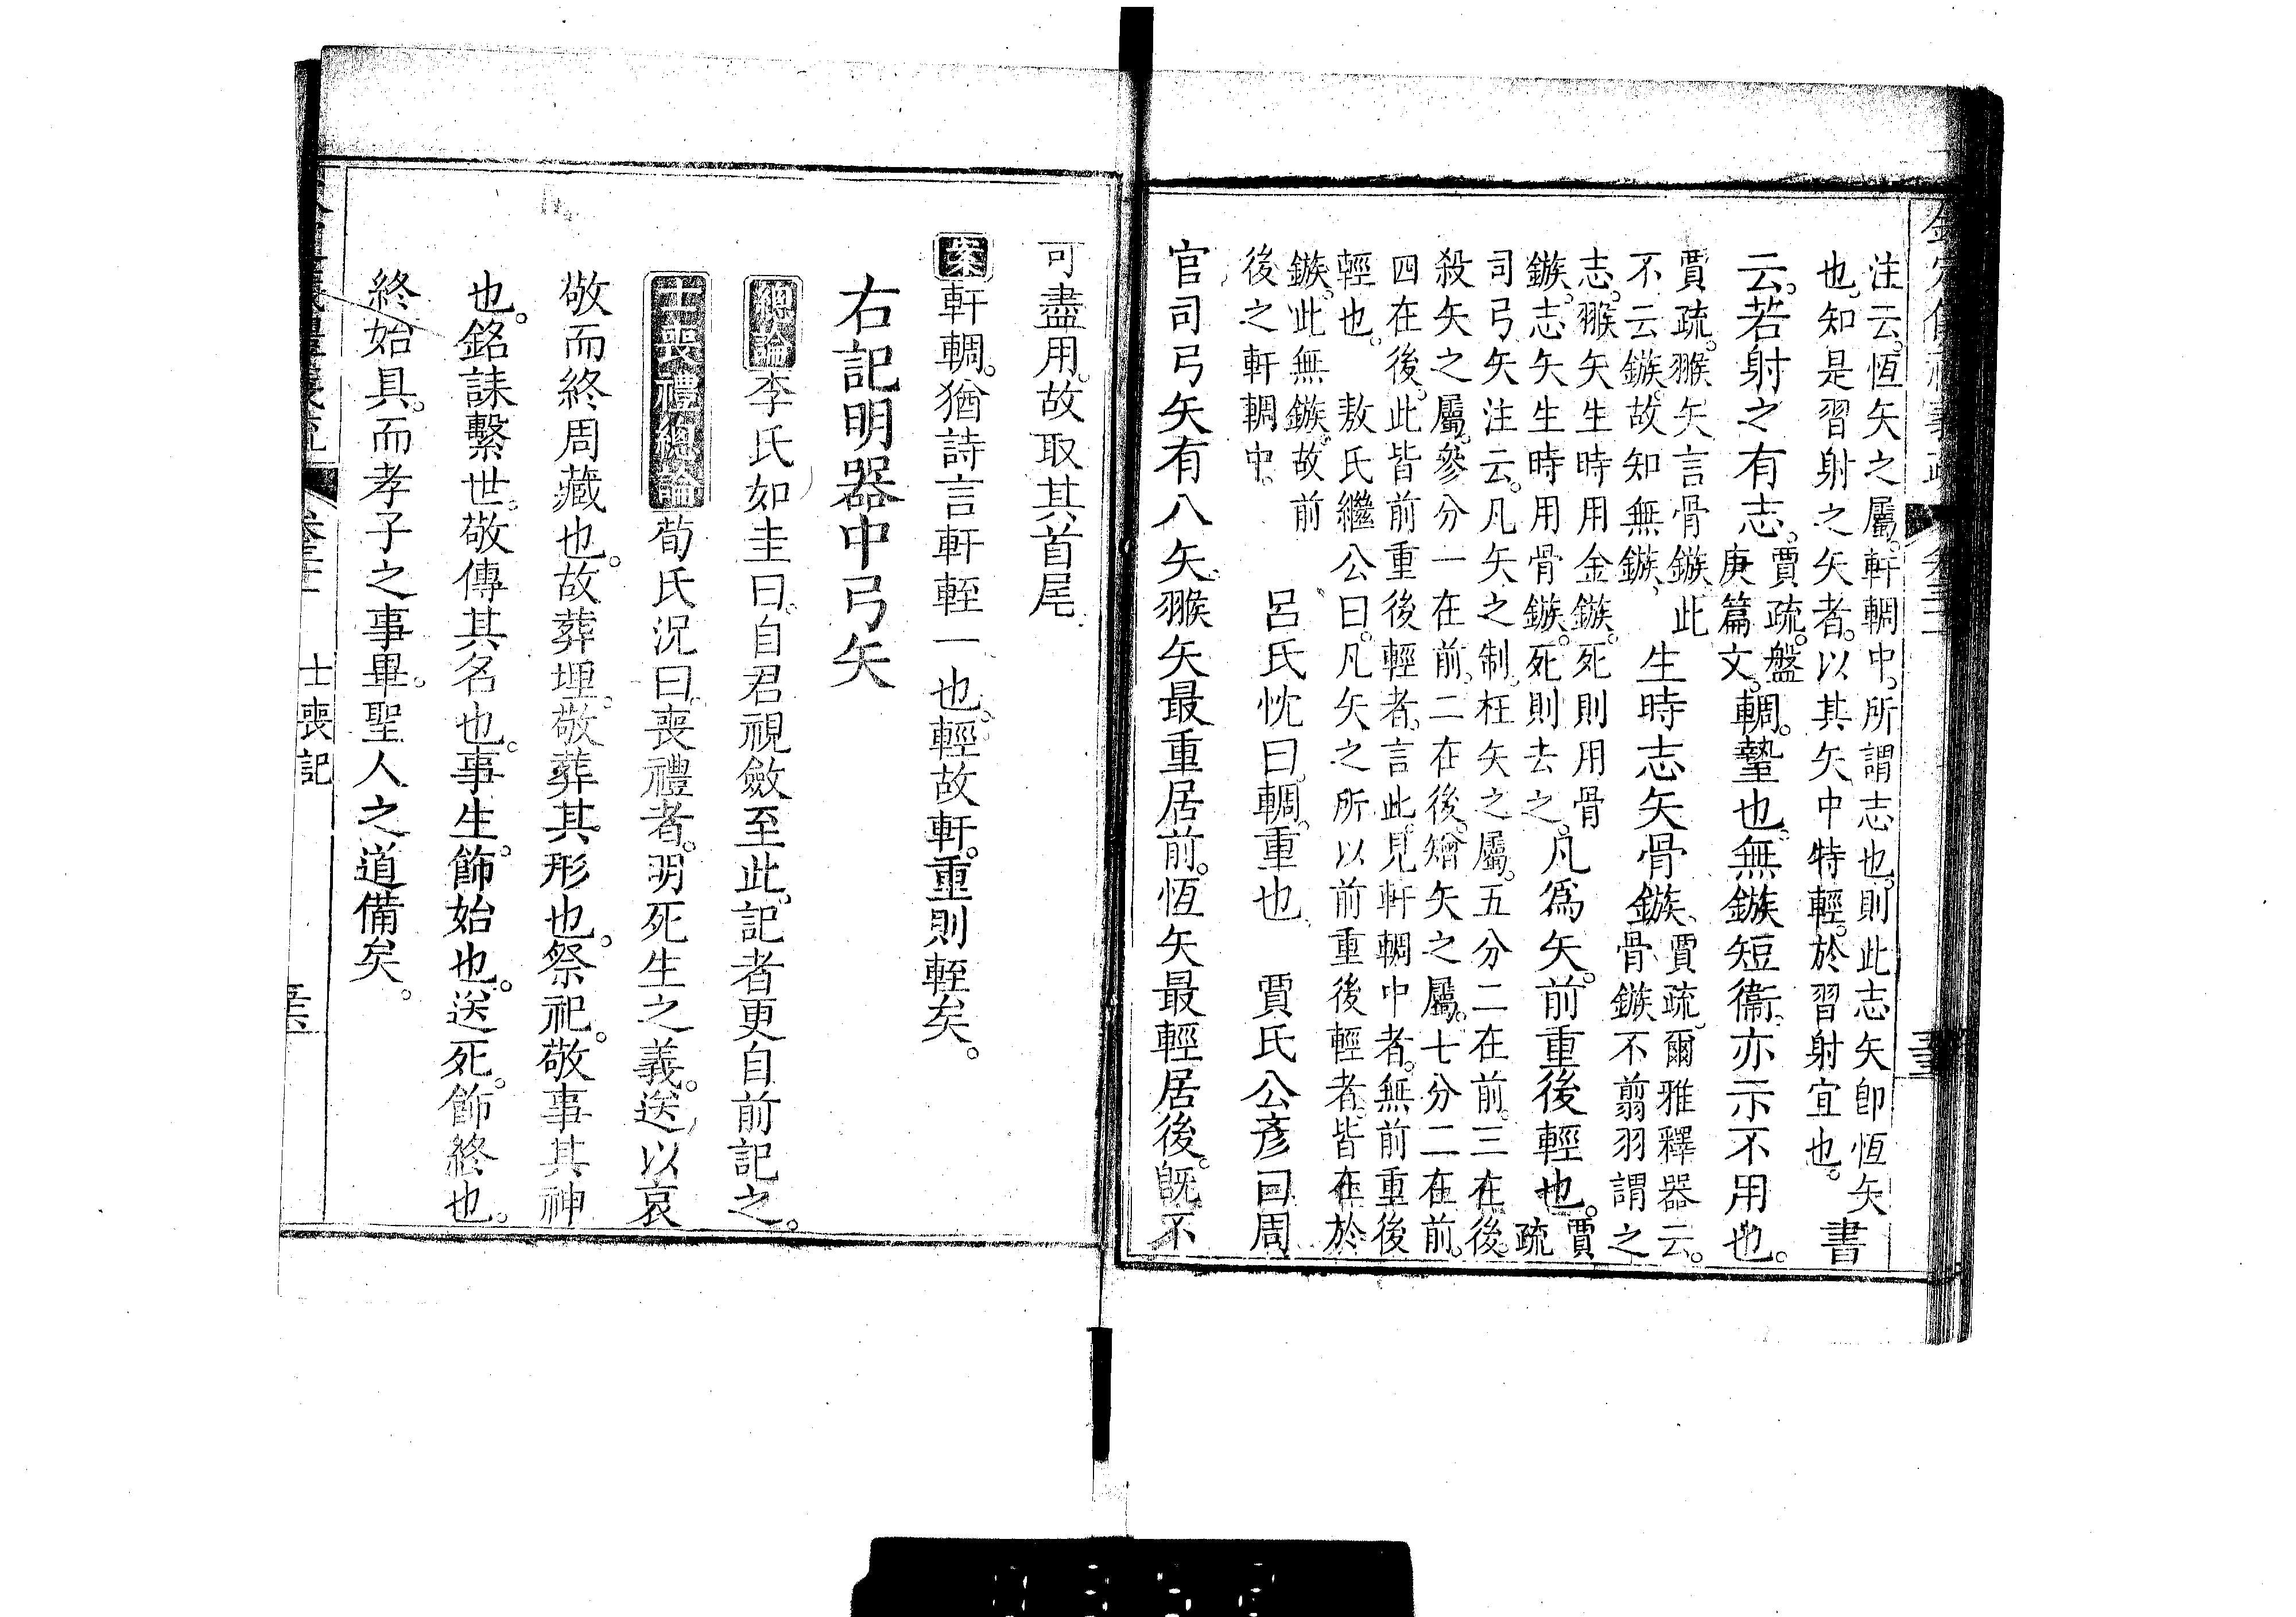 注云。恆矢之屬。軒輖中。所謂志也。則此志矢卽恆矢
也。知是習射之矢者。以其矢中特輕。於習射宜也。書
云。若射之有志。賈疏。盤庚篇文。輖。蟄也。無鏃短衞。亦示不用也。
賈疏。翭矢言骨鏃。此
不云鏃。故知無鏃、生時志矢骨鏃、賈疏。爾雅釋器云。骨鏃不翦羽謂之
志。翭矢生時用金鏃。死則用骨
鏃。志矢生時用骨鏃。死則去之。凡爲矢。前重後輕也。賈疏
司弓矢注云。凡矢之制。枉矢之屬。五分二在前。三在後。
殺矢之屬。參分一在前。二在後。矰矢之屬。七分二在前。
四在後。此皆前重後輕者。言此。見軒輖中者。無前重後
輕也。 敖氏繼公曰。凡矢之所以前重後輕者。皆在於
鏃。此無鏃。故前
後之軒輖中。 呂氏忱曰。輖。重也 賈氏公彥曰周
官司弓矢有八矢。翭矢最重居前。恆矢最輕居後。旣不
可盡用。故取其首尾
案軒輖。猶詩言軒輊一也。輕故軒。重則輊矣。
右記明器中弓矢
總論李氏如圭曰。自君視斂至此。記者更自前記之。
士喪禮總論荀氏況曰。喪禮者。明死生之義。送以哀
敬而終周藏也。故葬埋。敬葬其形也。祭祀。敬事其神
也。銘誄繫世。敬傳其名也。事生。飾始也。送死。飾終也。
終始具。而孝子之事畢。聖人之道備矣。
士喪記